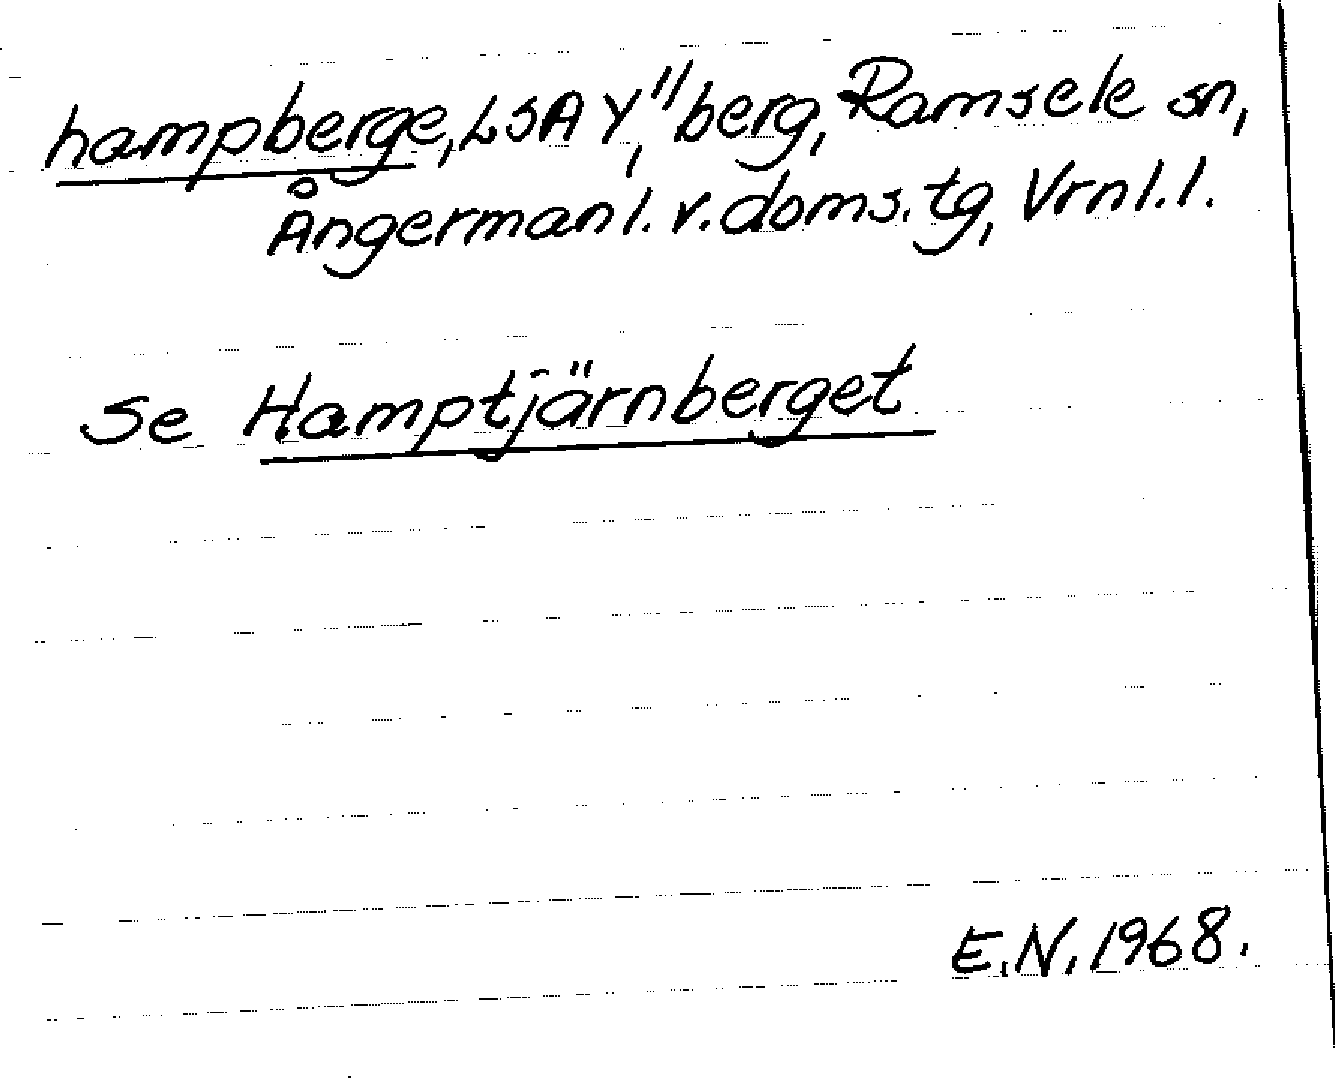 hampberge, LSA Y, "berg, Ramsele sn,
Ångermanl. v. doms. tg, Vrnl. l.
Se Hamptjärnberget
E.N. 1968.